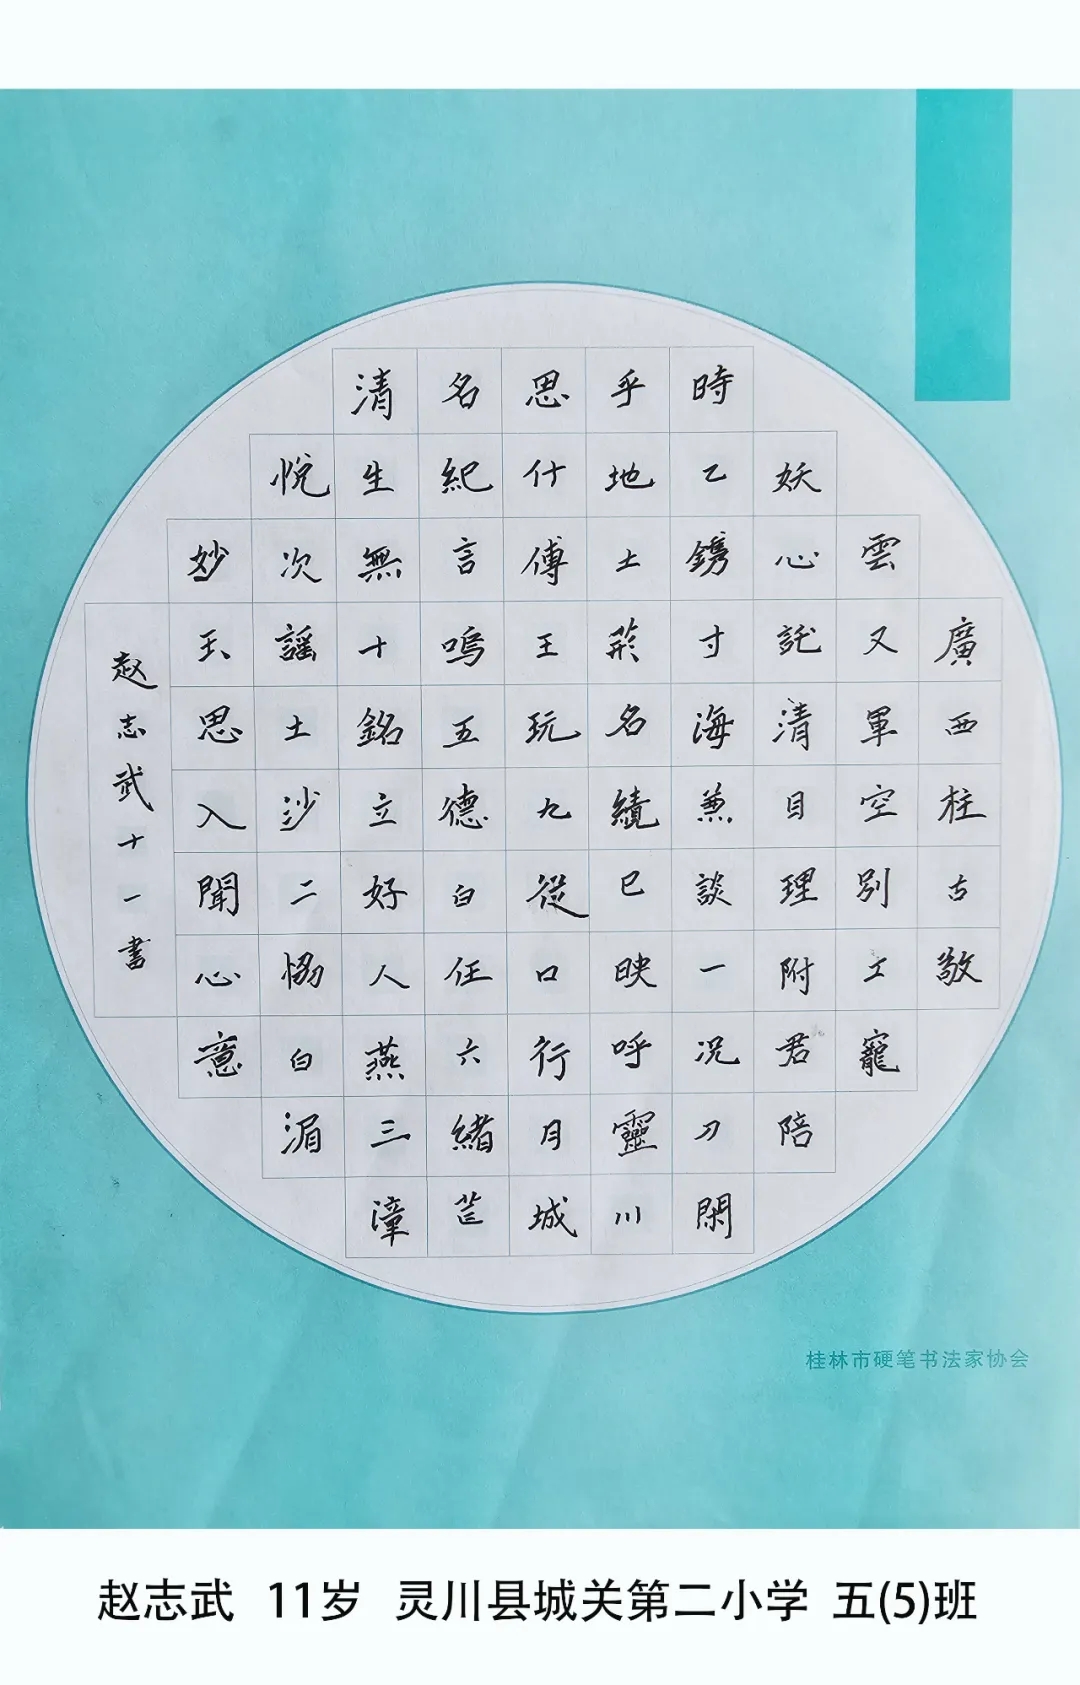 廣西柱古敬
雲又軍空別工寵
妖心託清目理附君陪
時乙鐫寸海兼談一况刀閑
乎地土名績巳映呼靈川
思什傅王玩九從口行月城
名紀言鳴五德白任六緒
清生無十銘立好人燕三漳
悦次謡土沙二白湄
妙思入聞心意
赵志武十一書
桂林市硬笔书法家协会
赵志武 11岁 灵川县城关第二小学 五(5)班